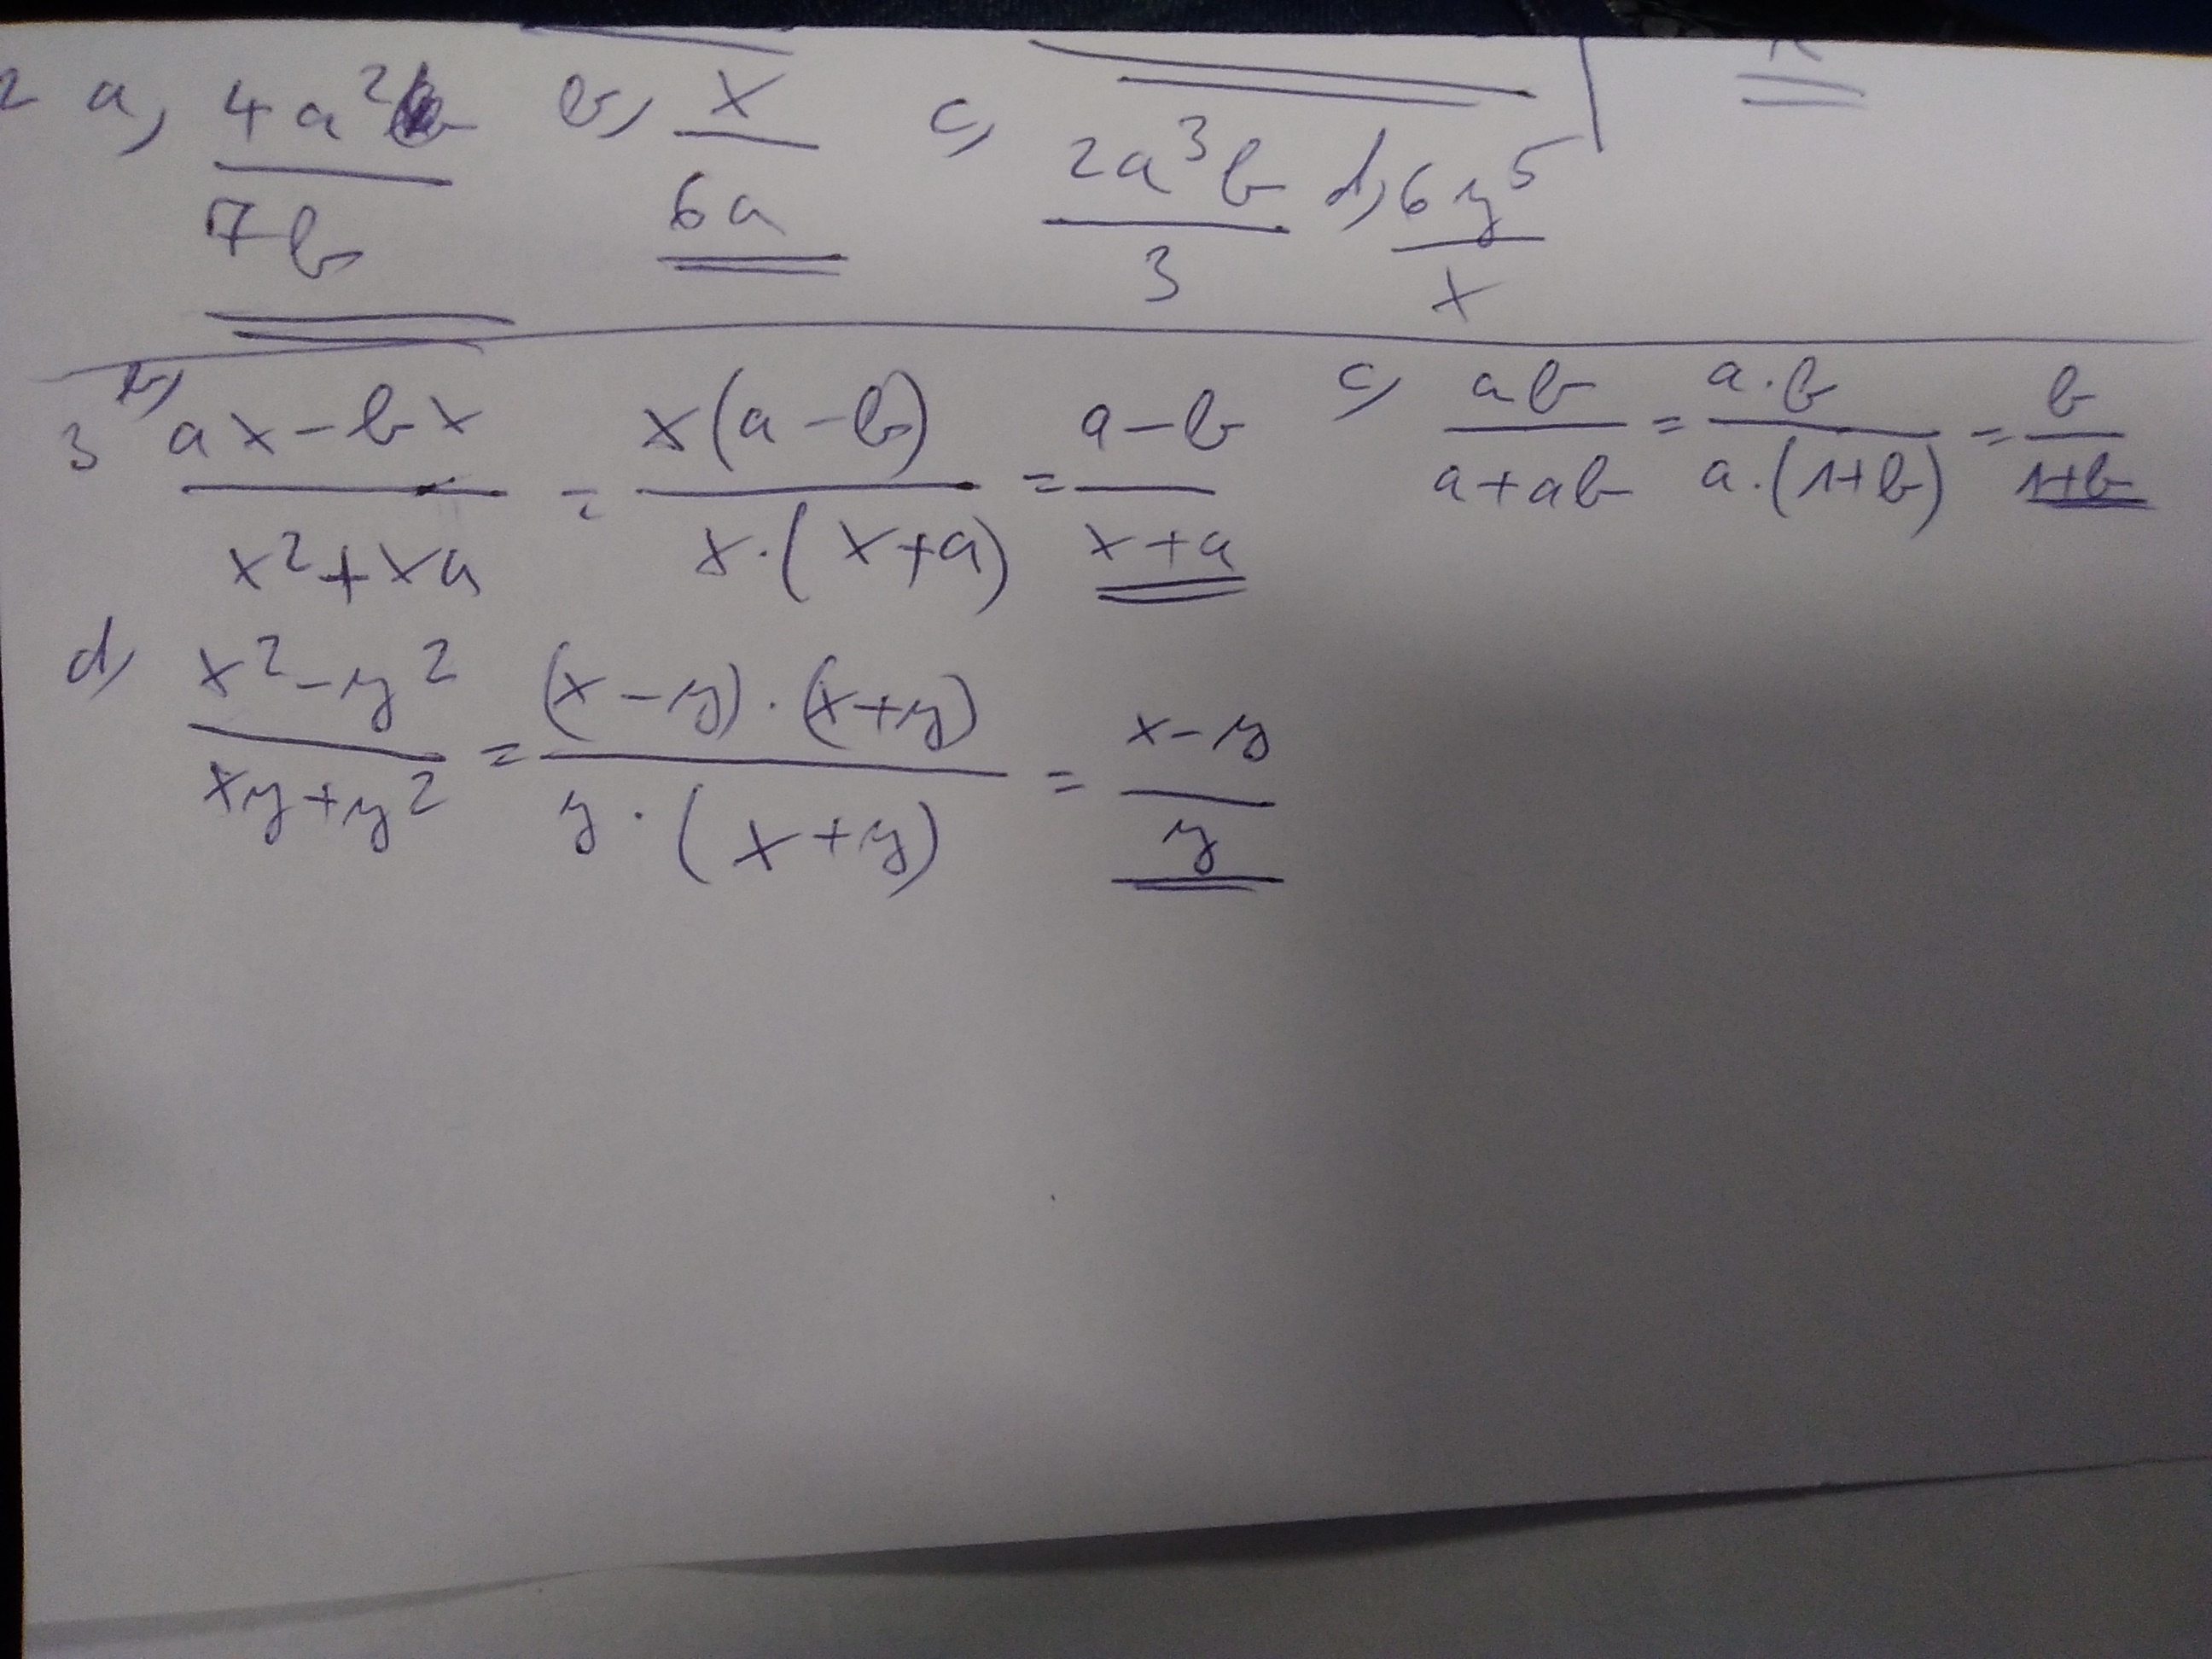 2 a, 4a²/7b b, x/6a c, 2a³b/3 d, 6y⁵/x
3 b, (ax-bx)/(x²+xa) = x(a-b)/x·(x+a) = (a-b)/(x+a) c, ab/(a+ab) = a·b/a·(1+b) = b/(1+b)
d, (x²-y²)/(xy+y²) = (x-y)·(x+y)/y·(x+y) = (x-y)/y